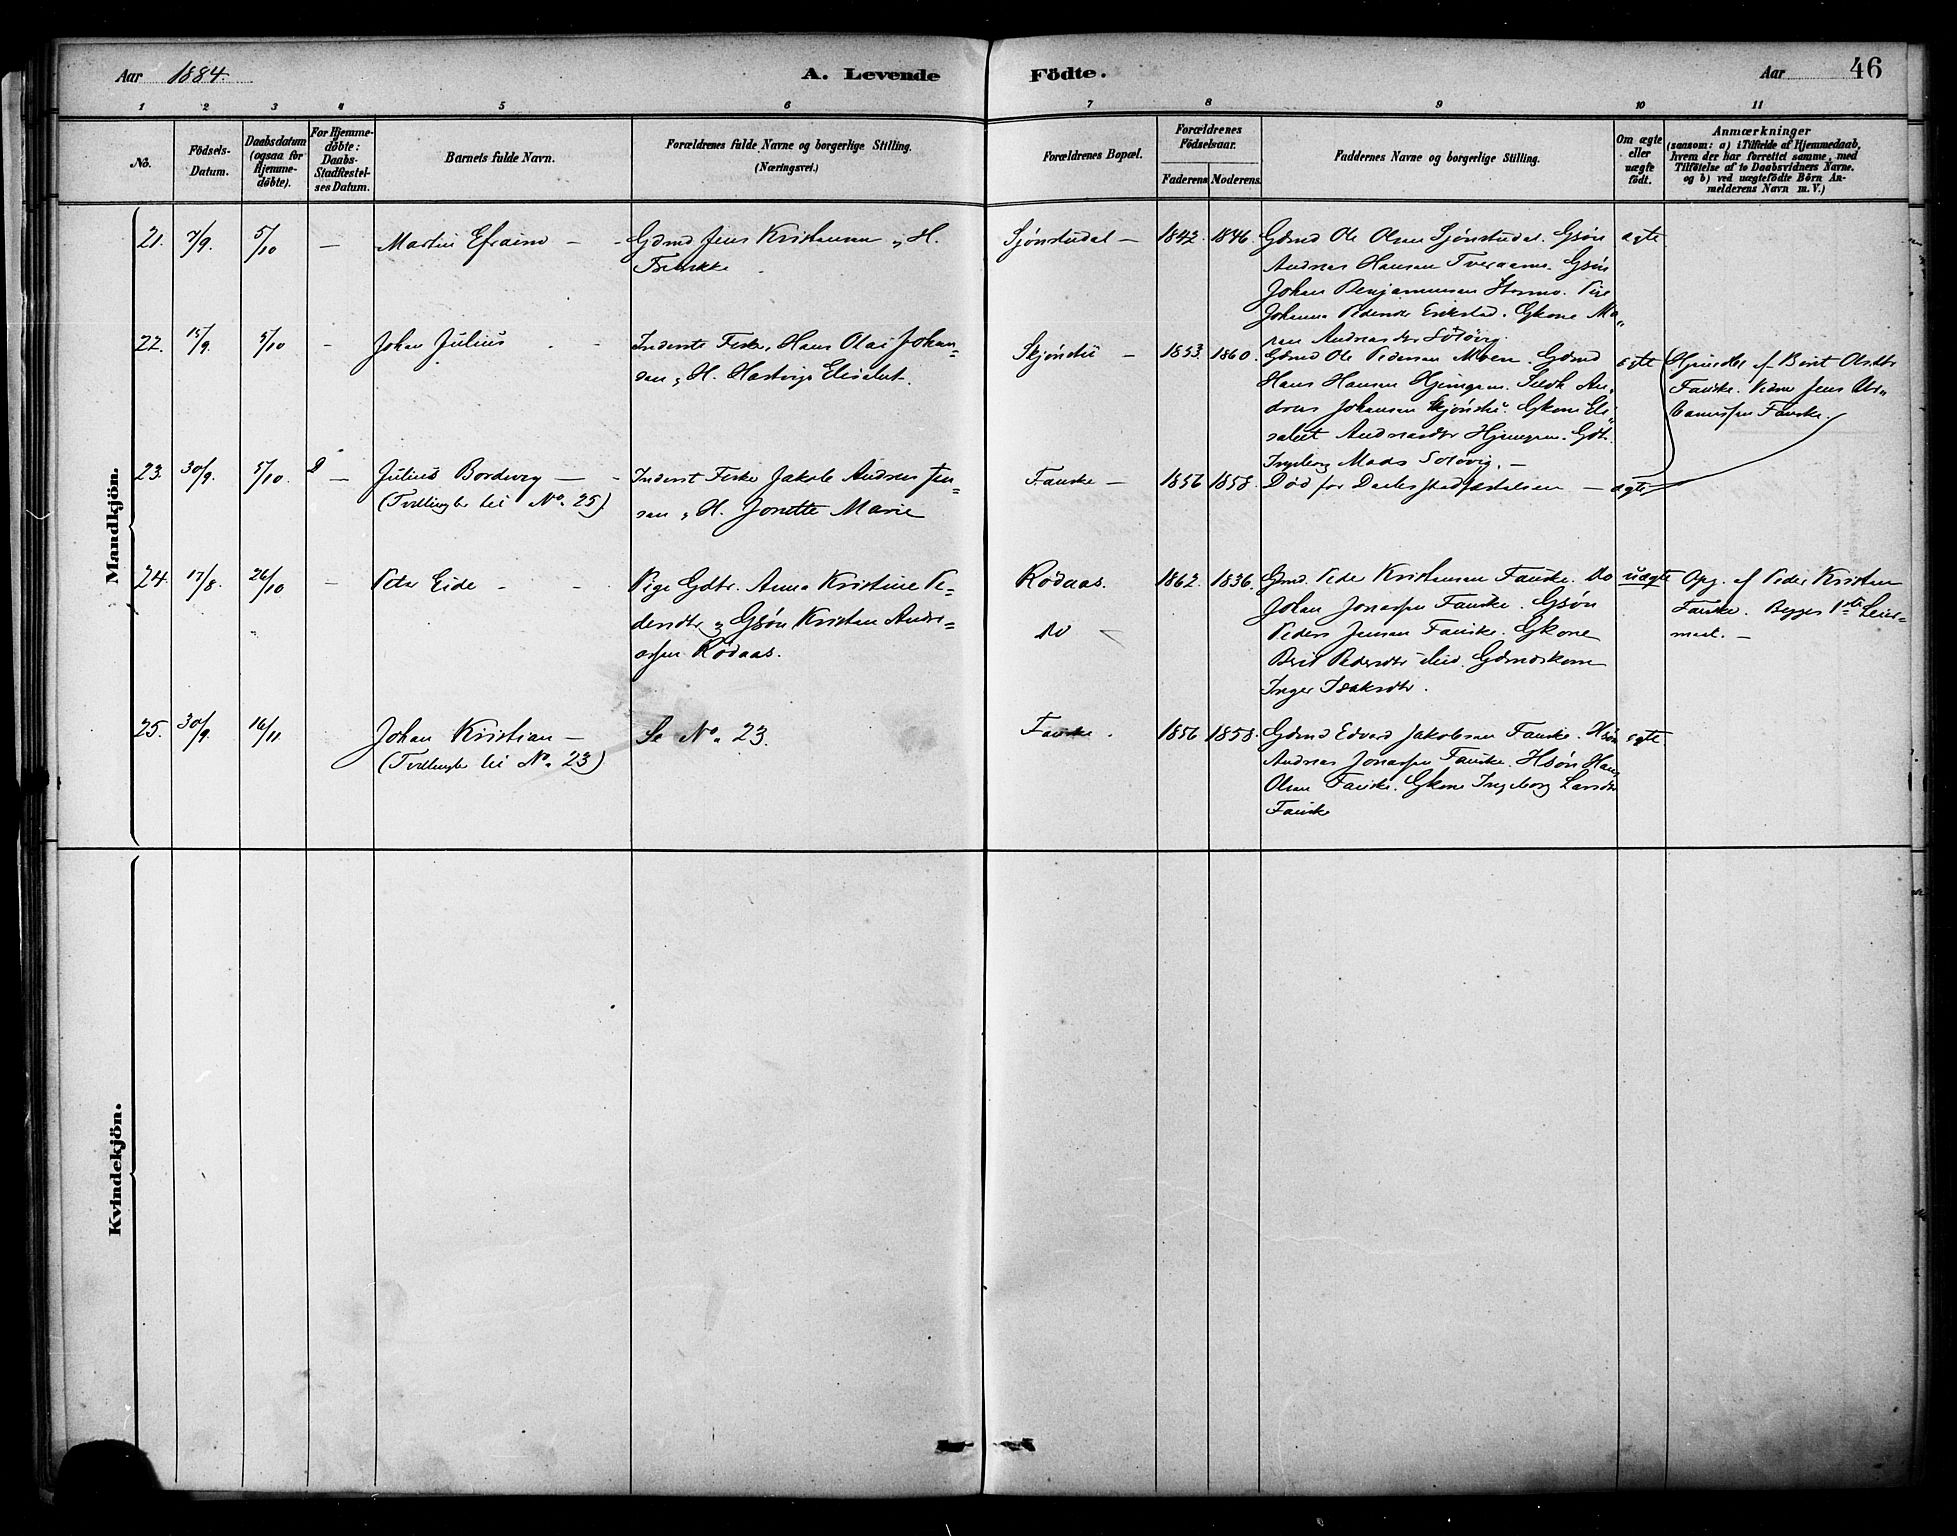 Aar 1884. A. Levende Födte. Aar 46
1 2 3 4 5 6 7 8 9 10 11
No. Födsels-Datum. Daabsdatum (ogsaa for Hjemme-döbte). For Hjemme-döbte: Daabs-Stadfæstel-ses Datum. Barnets fulde Navn. Forældrenes fulde Navne og borgerlige Stilling. (Næringsvei.) Forældrenes Bopæl. Forældrenes Födselsaar. Faderens. Moderens. Faddernes Navne og borgerlige Stilling. Om ægte eller uægte födt. Anmærkninger
(saasom: a) i Tilfælde af Hjemmedaab,
hvem der har forrettet samme, med
Tilföielse af to Daabsvidners Navne.
og b) ved uægtefödte Börn An-
melderens Navn m. V.)
Mandkjön.
21. 7/9. 5/10 — Martin Efraim — Gdmd Jens Kristensen, H.
Sjönstudal — 1842. 1846. Gdmd Ole Olsen Sjönstudal. Gsön ægte
Andreas Hansen Tveraamo. Gsön
Johan Benjaminsen Stormo. Pige
Johanna Pedersdtr Erikstad. Gkone Ma„
ren Andreasdtr Solövig.
22. 15/9. 5/10 - Johan Julius Inderst Fisker, Hans Olai Johan„
sen, H. Hartvige Elisabet.
Skjönstu — 1853. 1860. Gdmd Ole Pedersen Moen. Gdmd ægte
Hans Hansen Hjemgam. Selvh An„
dreas Johansen Skjönstu. Gkone Eli„
sabet Andreasdtr Hjemgam. Gdt.
Ingeborg Mads Solövig. —
Hjemdbt af Berit Olsdtr
Fauske. Vidne Jens
Fauske.
23. 30/9. 5/10. D — Julius Bordevig —
(Tvilling til No. 25)
Inderst Fisker Jakob Andreas Jen„
sen, H. Jonette Marie
Fauske — 1856 1858. Död för Daabsstadfæstelsen — ægte
24. 17/8. 26/10 - Peter Eide - Pige Gdtr. Anna Kristine Pe„
dersdtr og Gsön Kristen Andre„
assen Rödaas.
Rödaas. Do — 1862. 1836. Gmd. Peder Kristensen Fauske. Do uægte
Johan Jonassen Fauske. Gsön
Peder Jensen Fauske. Gkone
Berit Pedersdtr ibid. Gdmdskone
Inger Isaksdtr.
Opg. af Peder Kristensen
Fauske. Begges 1ste Leier„
maal. —
25. 30/9. 16/11 Johan Kristian —
(Tvilling til No. 23)
Se No. 23.
Fauske. 1856 1858. Gdmd Edvard Jakobsen Fauske. Hsön ægte
Andreas Jonassen Fauske. Hsön Hans
Olsen Fauske. Gkone Ingeborg Larsdtr
Fauske
Kvindekjön.